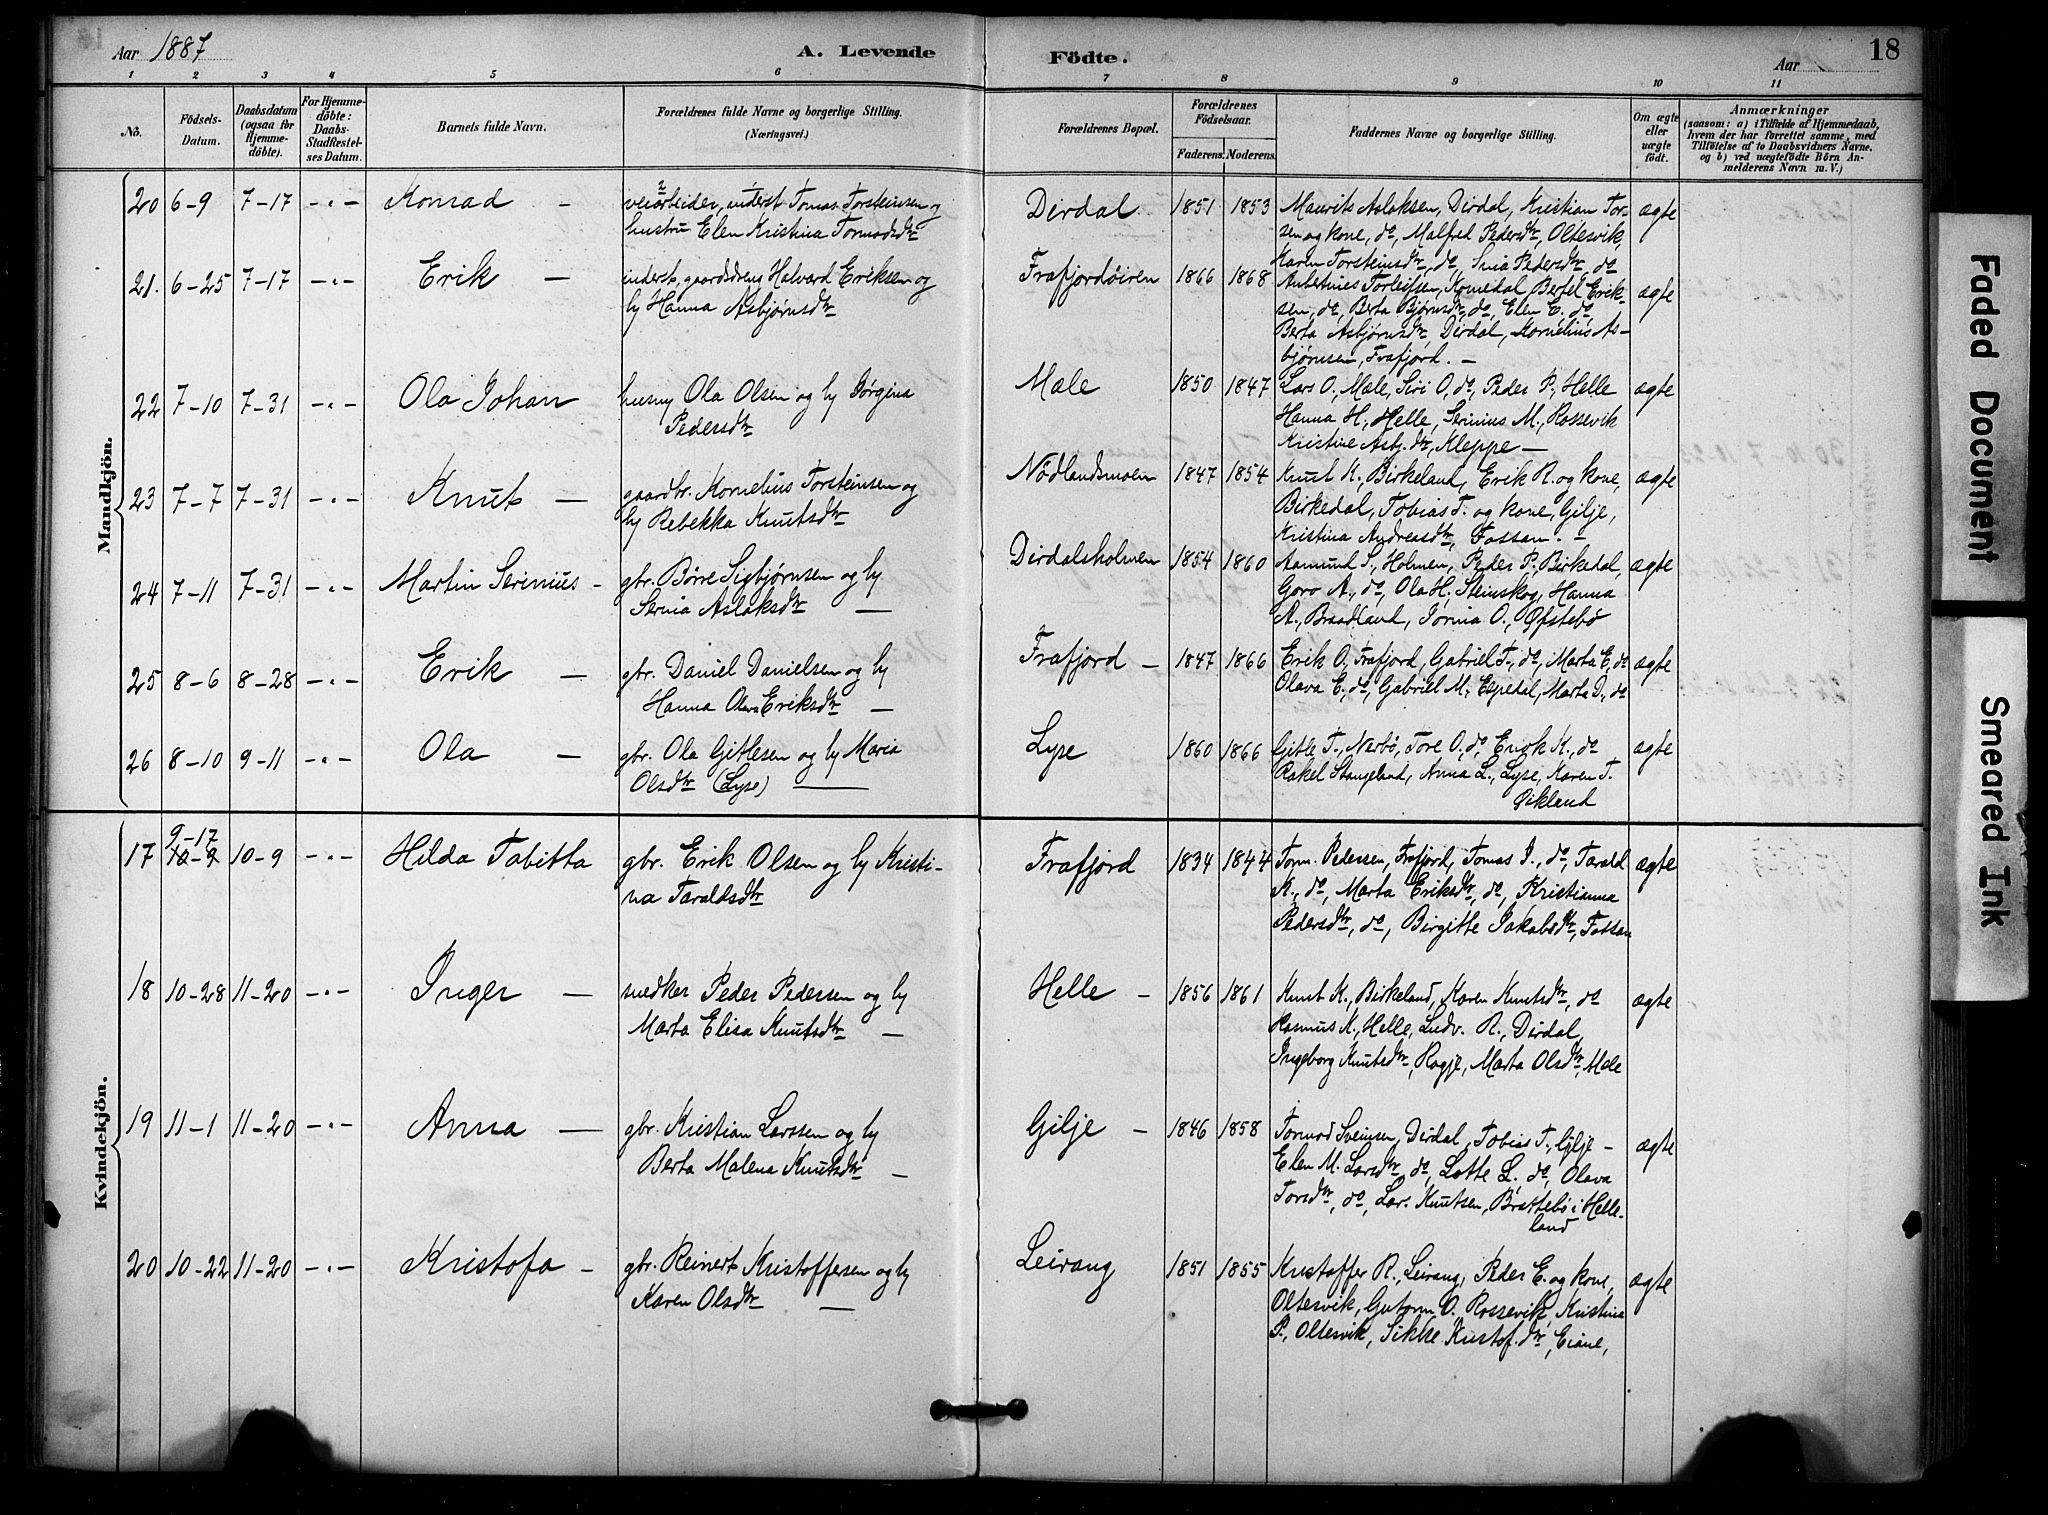 Aar 1887
A. Levende
Födte.
Aar
18
1 2 3 4 5 6 7 8 9 10 11
No.
Födsels-Datum.
Daabsdatum (ogsaa for Hjemmedöbte).
For Hjemmedöbte: Daabs-Stadfestelses Datum.
Barnets fulde Navn.
Forældrenes fulde Navne og borgerlige Stilling. (Næringsvei.)
Forældrenes Bopæl.
Forældrenes Födselsaar.
Faderens. Moderens.
Faddernes Navne og borgerlige Stilling.
Om ægte eller uægte födt.
Anmærkninger
(saasom: a) i Tilfælde af Hjemmedaab, hvem der har forrettet samme, med Tilföielse af to Daabsvidners Navne, og b) ved uægtefödte Börn Anmelderens Navn m. V.)
Mandkjön.
20 6-9 7-17 -"- Konrad - veiarbeider, inderst Tomas Torsteinsen og
hustru Elen Kristina Tormodsdtr
Dirdal 1851 1853 Maurits Aslaksen, Dirdal, Kristian Tor-
sen og kone, do, Malfred Pedersdtr, Oltesvik,
Karen Torsteinsdtr, do, Sina Pedersdtr, do
ægte
21. 6-25 7-17 -"- Erik - inderst, gaardsdreng Halvard Eriksen og
hy Hanna Asbjørnsdtr
Frafjordøiren 1866 1868 Anbetnies Torleifsen, Komedal Bertel Erik-
sen, do, Berta Bjørnsdtr, do, Elen E. do,
Berta Asbjørnsdtr, Dirdal, Kornelius As-
bjørnsen, Frafjord. -
ægte
22 7-10 7-31 -"- Ola Johan husm Ola Olsen og hy Jørgina
Pedersdtr
Mæle 1850 1847 Lars O., Mæle, Siri O, do, Peder P., Helle
Hanna H., Helle, Serinius M., Rossevik
Kristine Asbj.dtr, Kleppe -
ægte
23 7-7 7-31 -"- Knut - gaardbr. Kornelius Torsteinsen og
hy Rebekka Knutsdtr
Nödlandsmoen 1847 1854 Knut K., Birkeland, Erik R. og kone,
Birkedal, Tobias T. og kone, Gilje,
Kristina Andreasdtr, Fossan. -
ægte
24 7-11 7-31 -"- Martin Serinius - gbr. Børre Sigbjørnsen og hy
Serina Aslaksdtr -
Dirdalsholmen 1854 1860 Aamund S., Holmen, Peder P., Birkedal,
Goro A., do, Ola H., Steinskog, Hanna
A., Braadland, Jorina O., Øfstebö
ægte
25 8-6 8-28 -"- Erik - gbr. Daniel Danielsen og hy
Hanna Olava Eriksdtr -
Frafjord - 1847 1866 Erik O, Frafjord, Gabriel T., do, Marta E, do
Olava E, do, Gabriel M., Espedal, Marta D., do
ægte
26 8-10 9-11 -"- Ola - gbr. Ola Gitlesen og hy Maria
Olsdtr (Lyse) -
Lyse 1860 1866 Gitle T., Nesbö, Tore O, do, Enok K., do
Rakel Stangeland, Anna L., Lyse, Karen T.
Øikland
ægte
Kvindekjön.
17 9-17 10-9 10-9 -"- Hilda Tabitta gbr. Erik Olsen og hy Kristi-
na Taraldsdtr
Frafjord 1834 1844 Torm. Pedersen, Frafjord, Tomas I., do, Tarald
K., do, Marta Eriksdtr, do, Kristianna
Pedersdtr, do, Birgitte Jakobsdtr, Fossan
ægte
18 10-28 11-20 -"- Inger - snedker Peder Pedersen og hy
Marta Elisa Knutsdtr -
Helle - 1856 1861 Knut K., Birkeland, Karen Knutsdtr, do
Rasmus K., Helle, Ludv. R., Dirdal,
Ingeborg Knutsdtr, Rogje, Marta Olsdtr, Mæle
ægte
19 11-1 11-20 -"- Anna - gbr. Kristian Larssen og hy
Berta Malena Knutsdtr -
Gilje - 1846 1858 Tormod Sveinsen, Dirdal, Tobias T., Gilje -
Elen M. Larsdtr, do, Lotte L, do, Olava
Torsdtr, do, Lar. Knutsen, Brattebö i Helle-
land
ægte
20 10-22 11-20 -"- Kristofa - gbr. Reinert Kristoffersen og hy
Karen Olsdtr -
Leirang 1851 1855 Kristoffer R., Leirang, Peder E. og kone,
Oltesvik, Gutorm O. Rossevik, Kristina
P., Oltesvik, Sikke Kristof.dtr, Eiane,
ægte
Faded Document
Smeared Ink